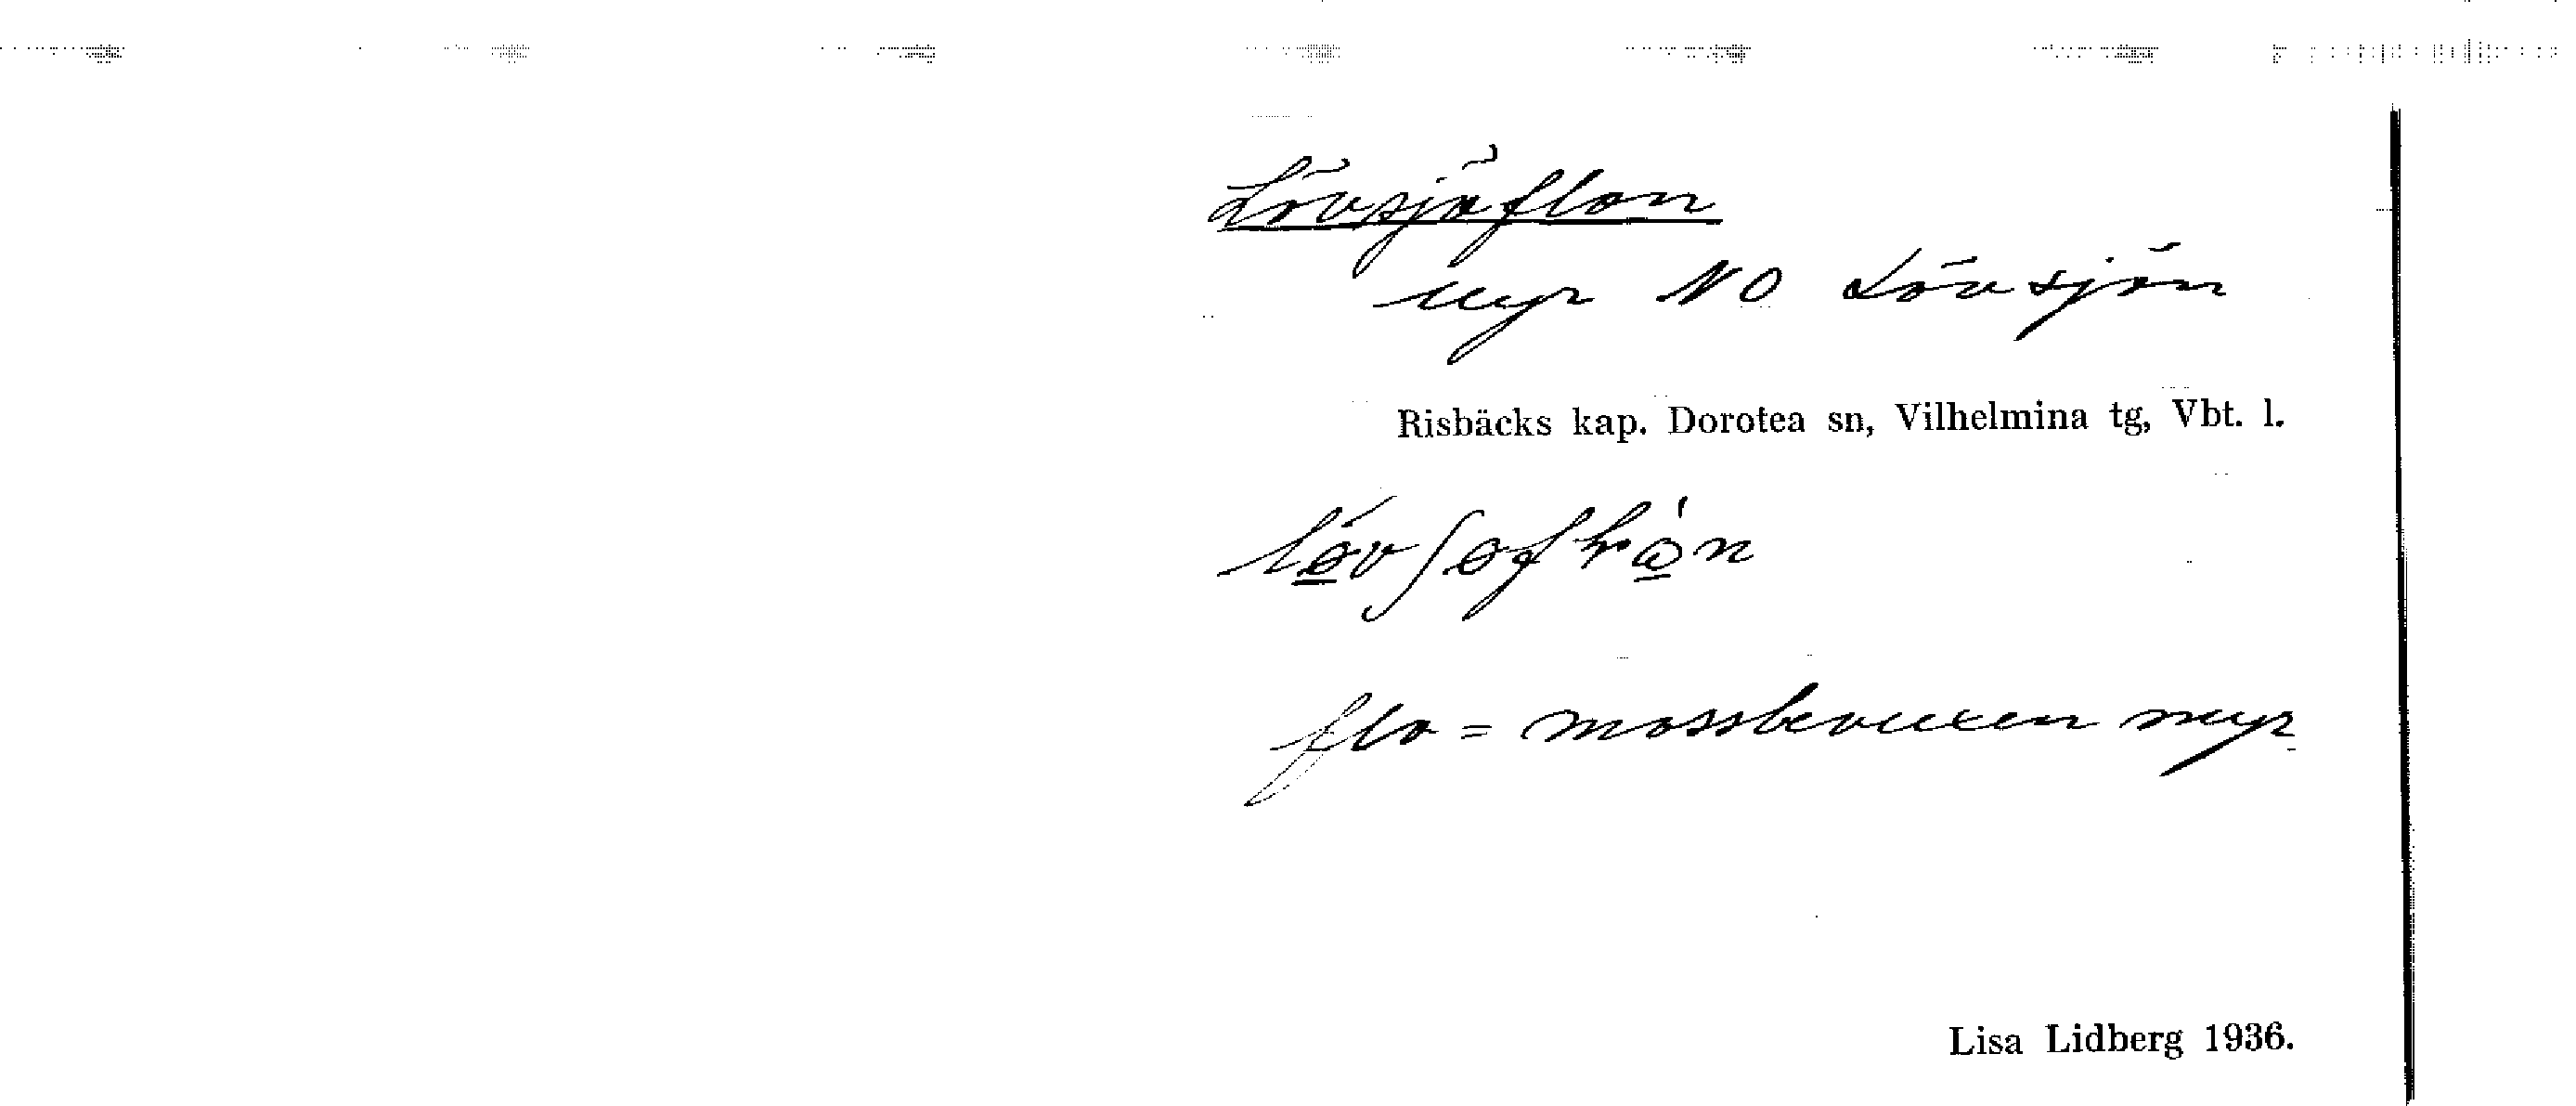 Lövsjöflon
myr NO Lövsjön
Risbäcks kap. Dorotea sn, Vilhelmina tg, Vbt. l.
flo = mossbevuxen myr
Lisa Lidberg 1936.